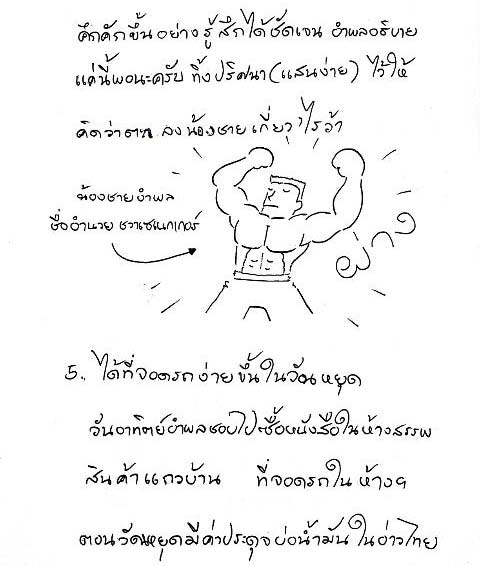 คึกคักขึ้นอย่างรู้สึกได้ชัดเจน อำพลอธิบาย
แค่นี้พอนะครับ ทิ้งปริศนา (แสนง่าย) ไว้ให้
คิดว่าตาน ลงน้องชายเกี่ยวไรว้า
น้องชายอำพล
ชื่ออำนวย ชวาเซเนกเกอร์
ผ่าง
5. ได้ที่จอดรถง่ายขึ้นในวันหยุด
วันอาทิตย์อำพลชอบไปซื้อหนังสือในห้างสรรพ
สินค้าแถวบ้าน ที่จอดรถในห้างฯ
ตอนวันหยุดมีค่าประดุจบ่อน้ำมันในอ่าวไทย